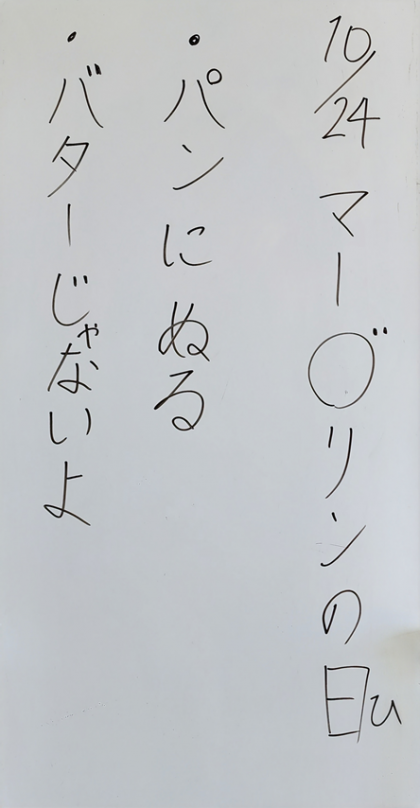 10/24 マー〇゛リンの日ひ
・パンにぬる
・バターじゃないよ